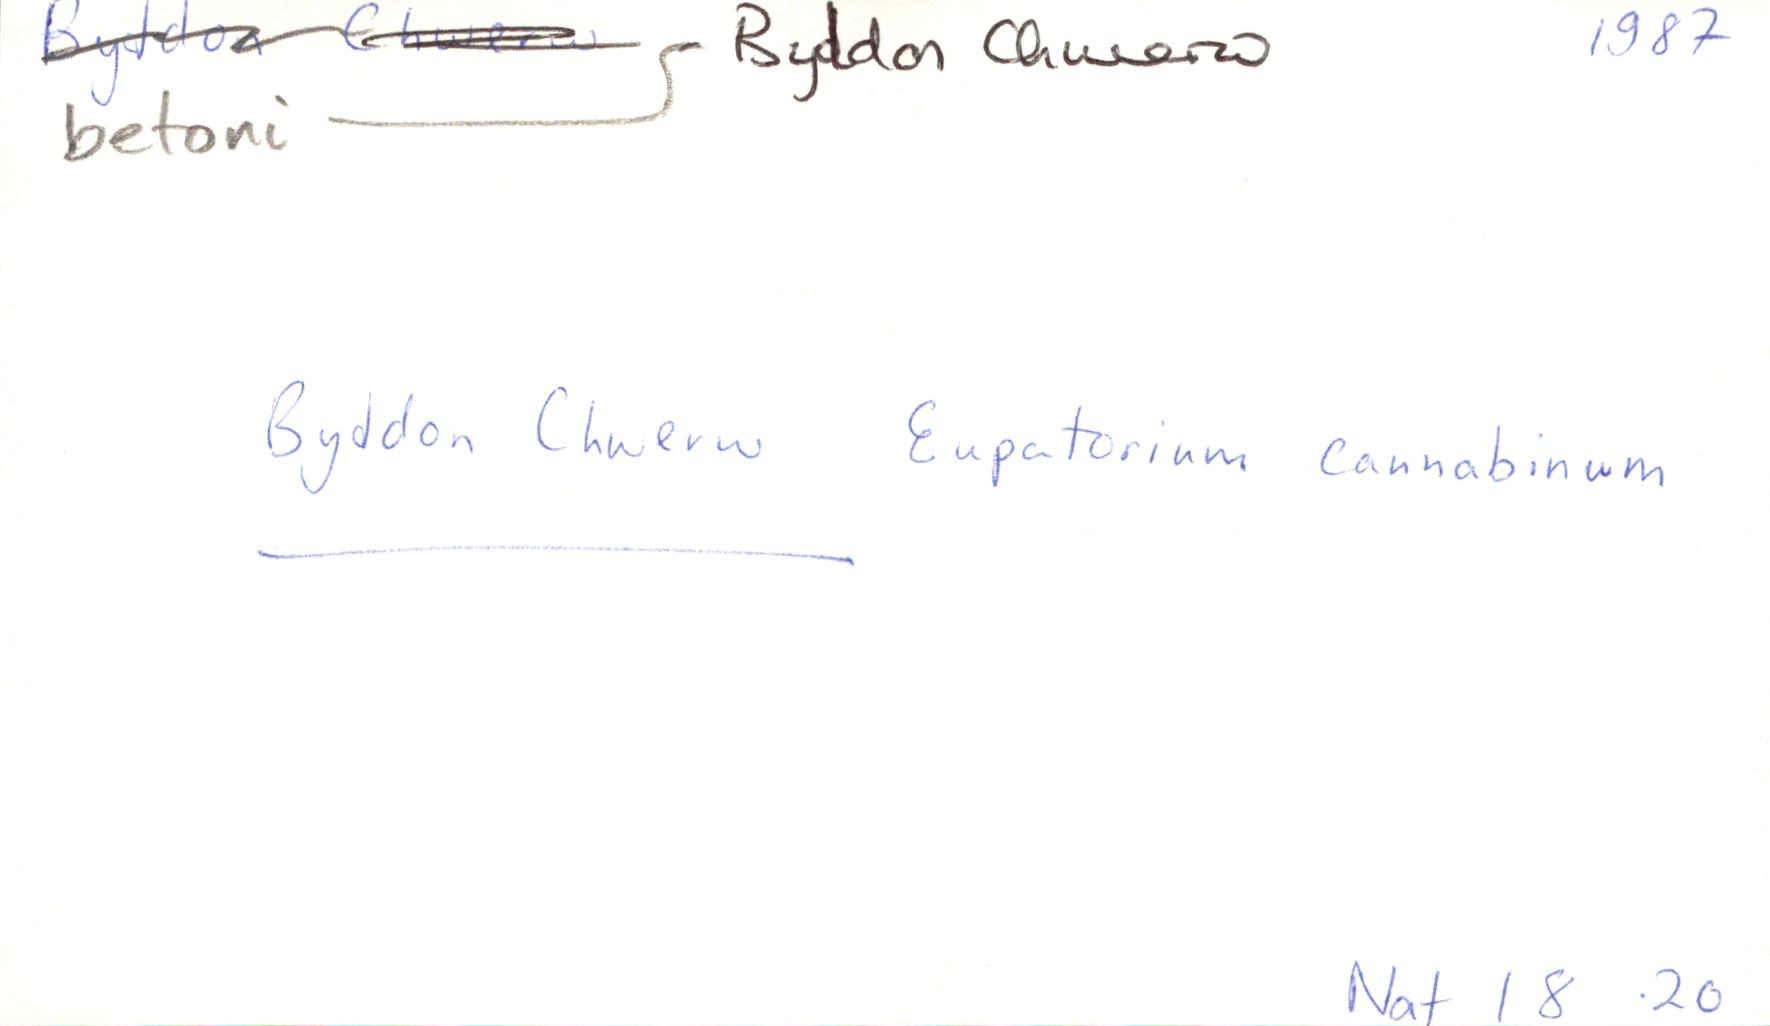 Byddon Chwerw Byddon Chwerw 1987
betoni
Byddon Chwerw Eupatorium cannabinum
Nat 18 .20